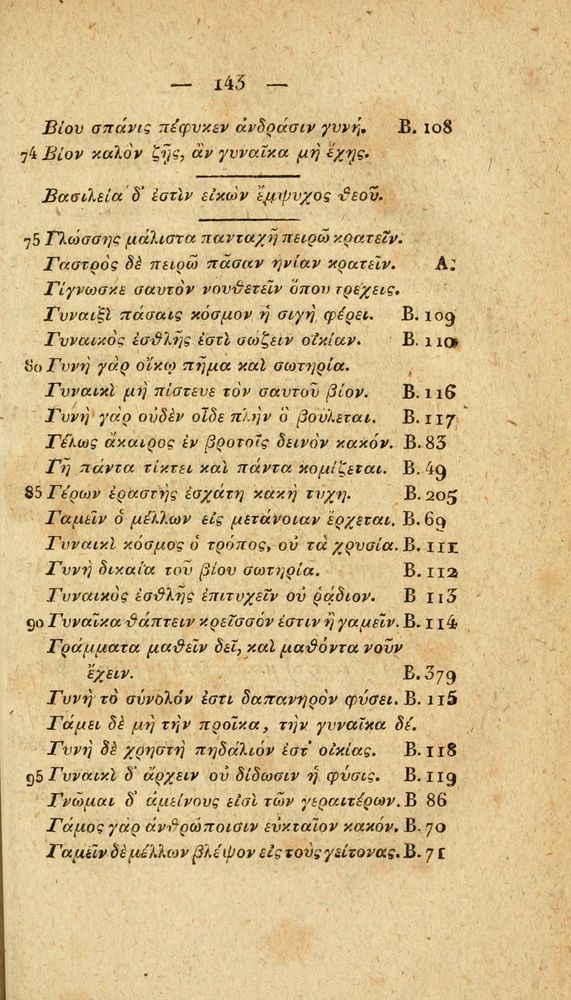 — 143 —
Βίου σπάνις πέφυκεν ἀνδράσιν γυνή. B. 108
74 Βίον καλὸν ζῇς, ἂν γυναῖκα μὴ ἔχῃς.
Βασιλεία δ᾽ ἐστὶν εἰκὼν ἔμψυχος θεοῦ.
75 Γλώσσης μάλιστα πανταχῆ πειρῶ κρατεῖν.
Γαστρὸς δὲ πειρῶ πᾶσαν ἡνίαν κρατεῖν. A.
Γίγνωσκε σαυτὸν νουθετεῖν ὅπου τρέχεις.
Γυναιξὶ πάσαις κόσμον ἡ σιγὴ φέρει. B. 109
Γυναικὸς ἐσθλῆς ἐστὶ σώζειν οἰκίαν. B. 110
80 Γυνὴ γὰρ οἴκῳ πῆμα καὶ σωτηρία.
Γυναικὶ μὴ πίστευε τὸν σαυτοῦ βίον. B. 116
Γυνὴ γὰρ οὐδὲν οἶδε πλὴν ὃ βούλεται. B. 117
Γέλως ἄκαιρος ἐν βροτοῖς δεινὸν κακόν. B. 83
Γῆ πάντα τίκτει καὶ πάντα κομίζεται. B. 49
85 Γέρων ἐραστὴς ἐσχάτη κακὴ τύχη. B. 205
Γαμεῖν ὁ μέλλων εἰς μετάνοιαν ἔρχεται. B. 69
Γυναικὶ κόσμος ὁ τρόπος, οὐ τὰ χρυσία. B. 111
Γυνὴ δικαία τοῦ βίου σωτηρία. B. 112
Γυναικὸς ἐσθλῆς ἐπιτυχεῖν οὐ ῥᾴδιον. B 113
90 Γυναῖκα θάπτειν κρεῖσσόν ἐστιν ἢ γαμεῖν. B. 114
Γράμματα μαθεῖν δεῖ, καὶ μαθόντα νοῦν
ἔχειν. B. 379
Γυνὴ τὸ σύνολόν ἐστι δαπανηρὸν φύσει. B. 115
Γάμει δὲ μὴ τὴν προῖκα, τὴν γυναῖκα δέ.
Γυνὴ δὲ χρηστὴ πηδάλιόν ἐστ᾽ οἰκίας. B. 118
95 Γυναικὶ δ᾽ ἄρχειν οὐ δίδωσιν ἡ φύσις. B. 119
Γνῶμαι δ᾽ ἀμείνους εἰσὶ τῶν γεραιτέρων. B 86
Γάμος γὰρ ἀνθρώποισιν εὐκταῖον κακόν. B. 70
Γαμεῖν δὲ μέλλων βλέψον εἰς τοὺς γείτονας. B. 71